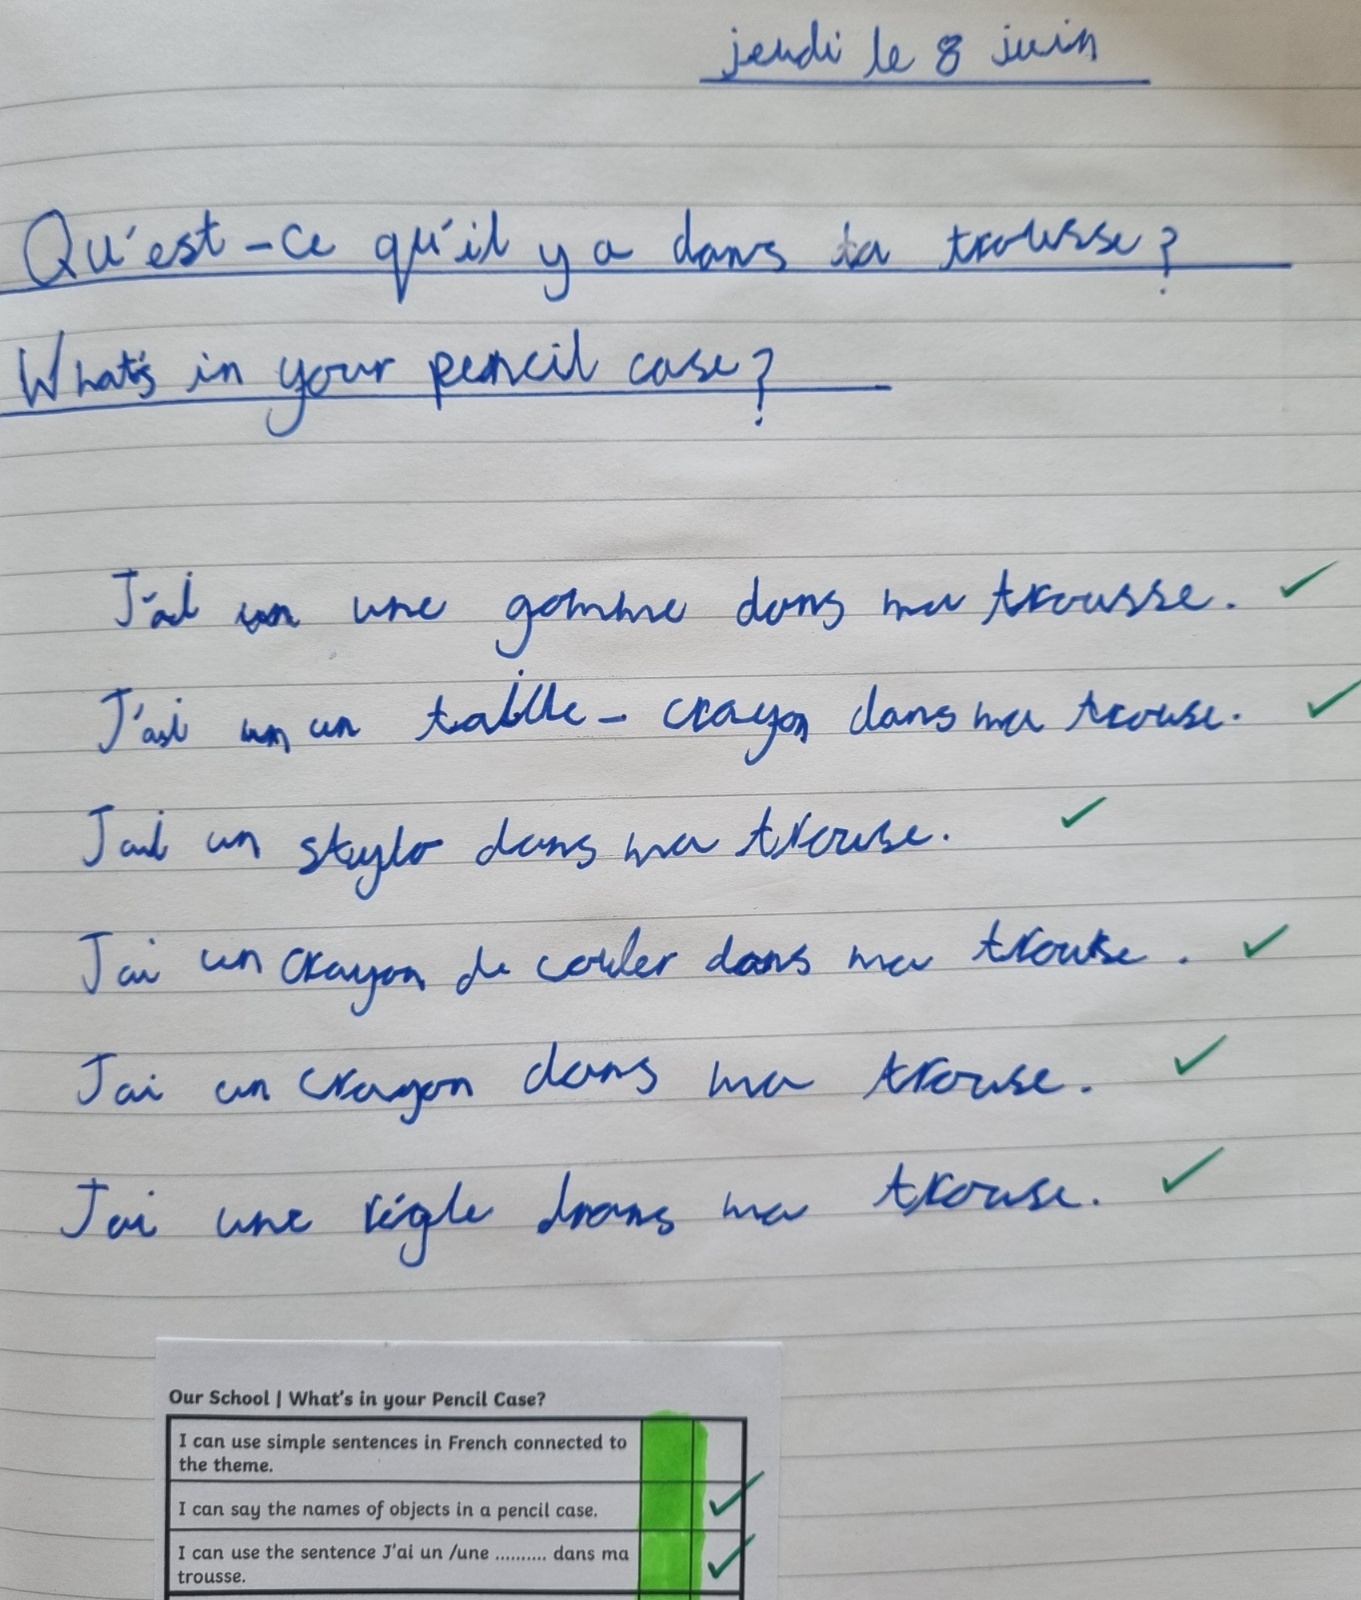 jeudi le 8 juin
Qu'est-ce qu'il y a dans ta trousse?
What's in your pencil case?
J'ai une gomme dans ma trousse.
J'ai un taille-crayon dans ma trouse.
Jai un stylo dans ma trouse.
Jai un crayon de couler dans ma trouse.
Jai un crayon dans ma trouse.
Jai une régle drans ma trouse.
Our School | What's in your Pencil Case?
I can use simple sentences in French connected to
the theme.
I can say the names of objects in a pencil case.
I can use the sentence J'ai un /une .......... dans ma
trousse.